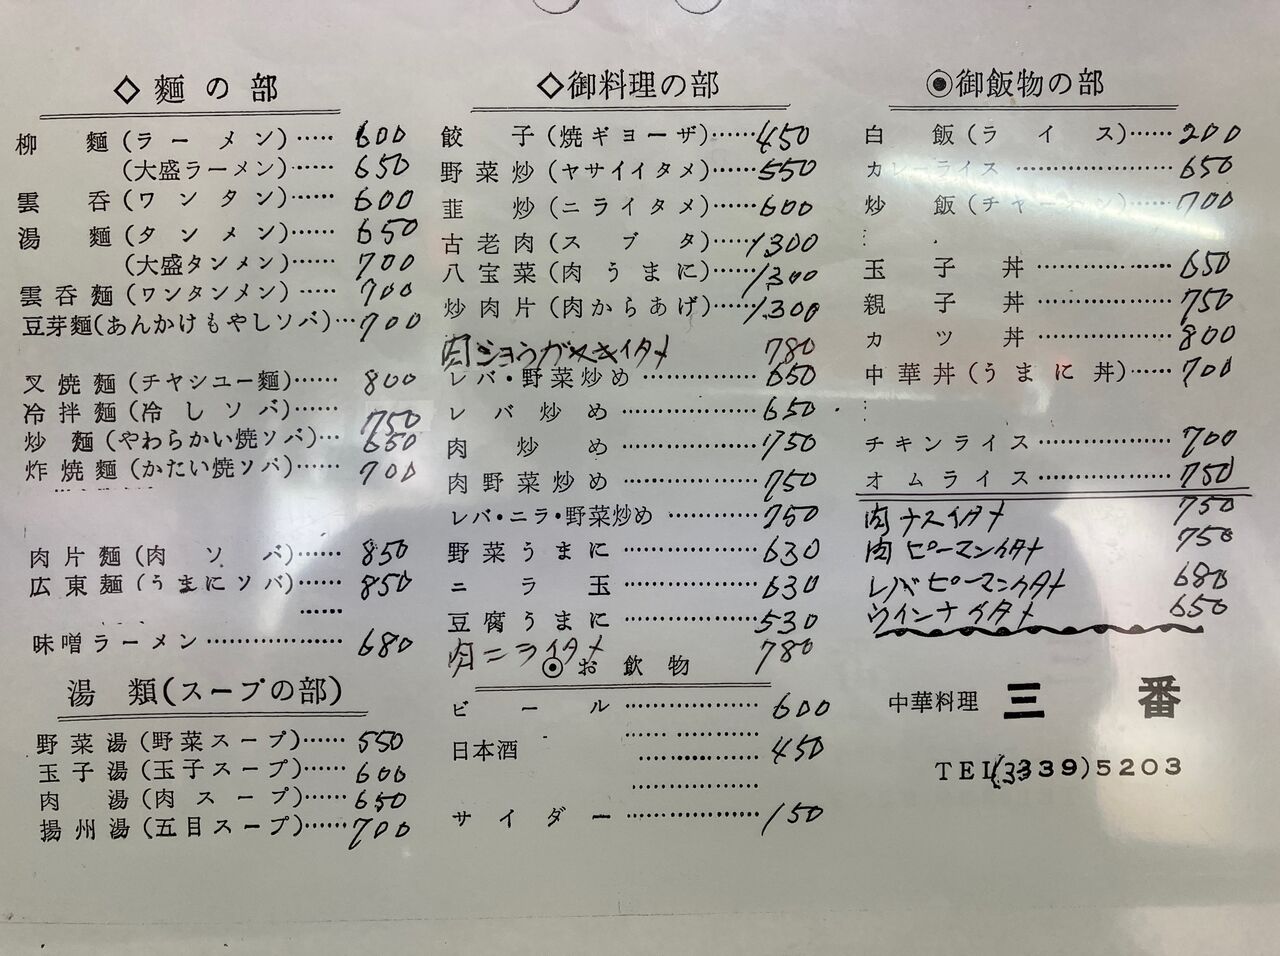 ◇ 麺の部
柳麺(ラーメン)…… 600
(大盛ラーメン)…… 650
雲呑(ワンタン)…… 600
湯麺(タンメン)…… 650
(大盛タンメン)…… 700
雲呑麺(ワンタンメン)…… 700
豆芽麺(あんかけもやしソバ)… 700
叉焼麺(チヤシユー麺)…… 800
冷拌麺(冷しソバ)…… 750
炒麺(やわらかい焼ソバ)… 650
炸焼麺(かたい焼ソバ)…… 700
肉片麺(肉ソバ)…… 850
広東麺(うまにソバ)…… 850
……
味噌ラーメン……………… 680
湯類(スープの部)
野菜湯(野菜スープ)…… 550
玉子湯(玉子スープ)…… 600
肉湯(肉スープ)…… 650
揚州湯(五目スープ)…… 700
◇御料理の部
餃子(焼ギョーザ)…… 450
野菜炒(ヤサイイタメ)…… 550
韮炒(ニライタメ)…… 600
古老肉(スブタ)…… 1300
八宝菜(肉うまに)…… 1300
炒肉片(肉からあげ)…… 1300
肉ショウガヤキイタメ 780
レバ・野菜炒め…………… 650
レバ炒め……………… 650
肉炒め……………… 750
肉野菜炒め……………… 750
レバ・ニラ・野菜炒め………… 750
野菜うまに……………… 630
ニラ玉……………… 630
豆腐うまに……………… 530
肉ニライタメ 780
◉お飲物
ビール……………… 600
日本酒 …………… 450
サイダー……………… 150
◉御飯物の部
白飯(ライス)…… 200
カレーライス…………… 650
炒飯(チャーハン)…… 700
玉子丼……………… 650
親子丼……………… 750
カツ丼……………… 800
中華丼(うまに丼)…… 700
チキンライス……………… 700
オムライス……………… 750
肉ナスイタメ 750
肉ピーマンイタメ 750
レバピーマンイタメ 680
ウインナイタメ 650
中華料理 三番
TEL(3339)5203